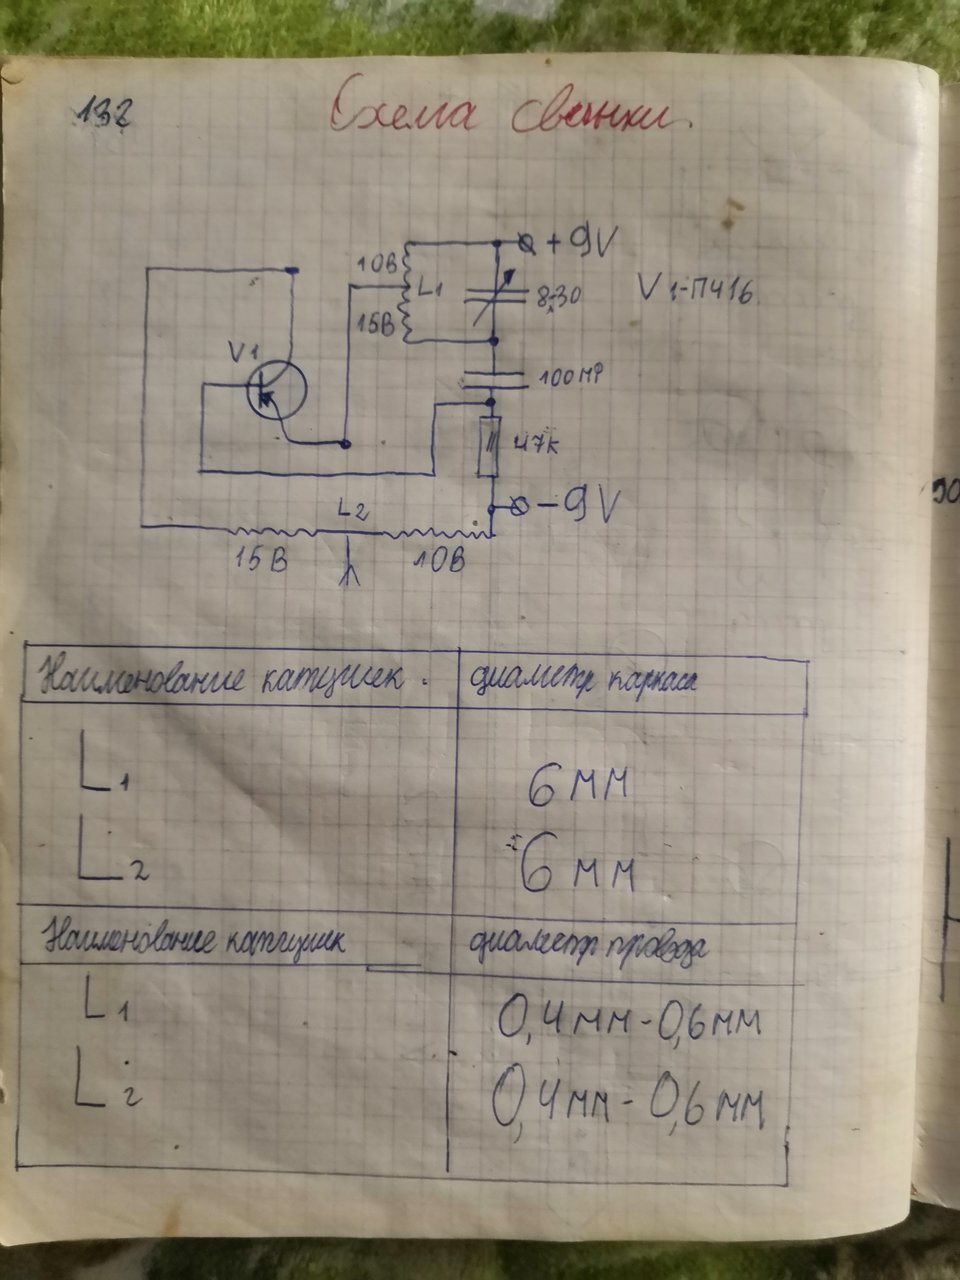 132
Схема Свинки.
+ 9V
10В
L1
8-30
V1-П416.
15В
V1
100МР
47к
- 9V
L2
15В
10В
Наименование катушек.
диаметр каркаса
L1
6мм
L2
6мм
Наименование катушек
диаметр провода
L1
0,4мм-0,6мм
L2
0,4мм-0,6мм